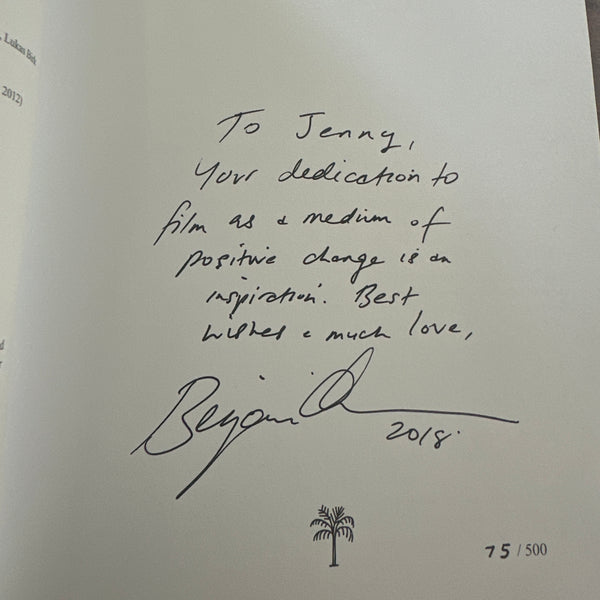 , Lukas
2012)
To Jenny,
Your dedication to
film as a medium of
positive change is an
inspiration. Best
wishes & much love,
Benjamin
2018.
75 / 500